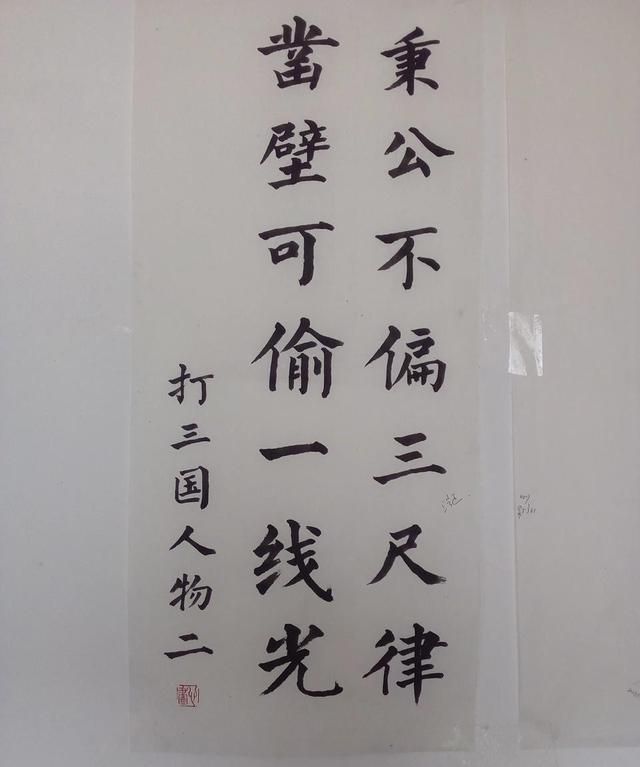 秉公不偏三尺律
凿壁可偷一线光
打三国人物二